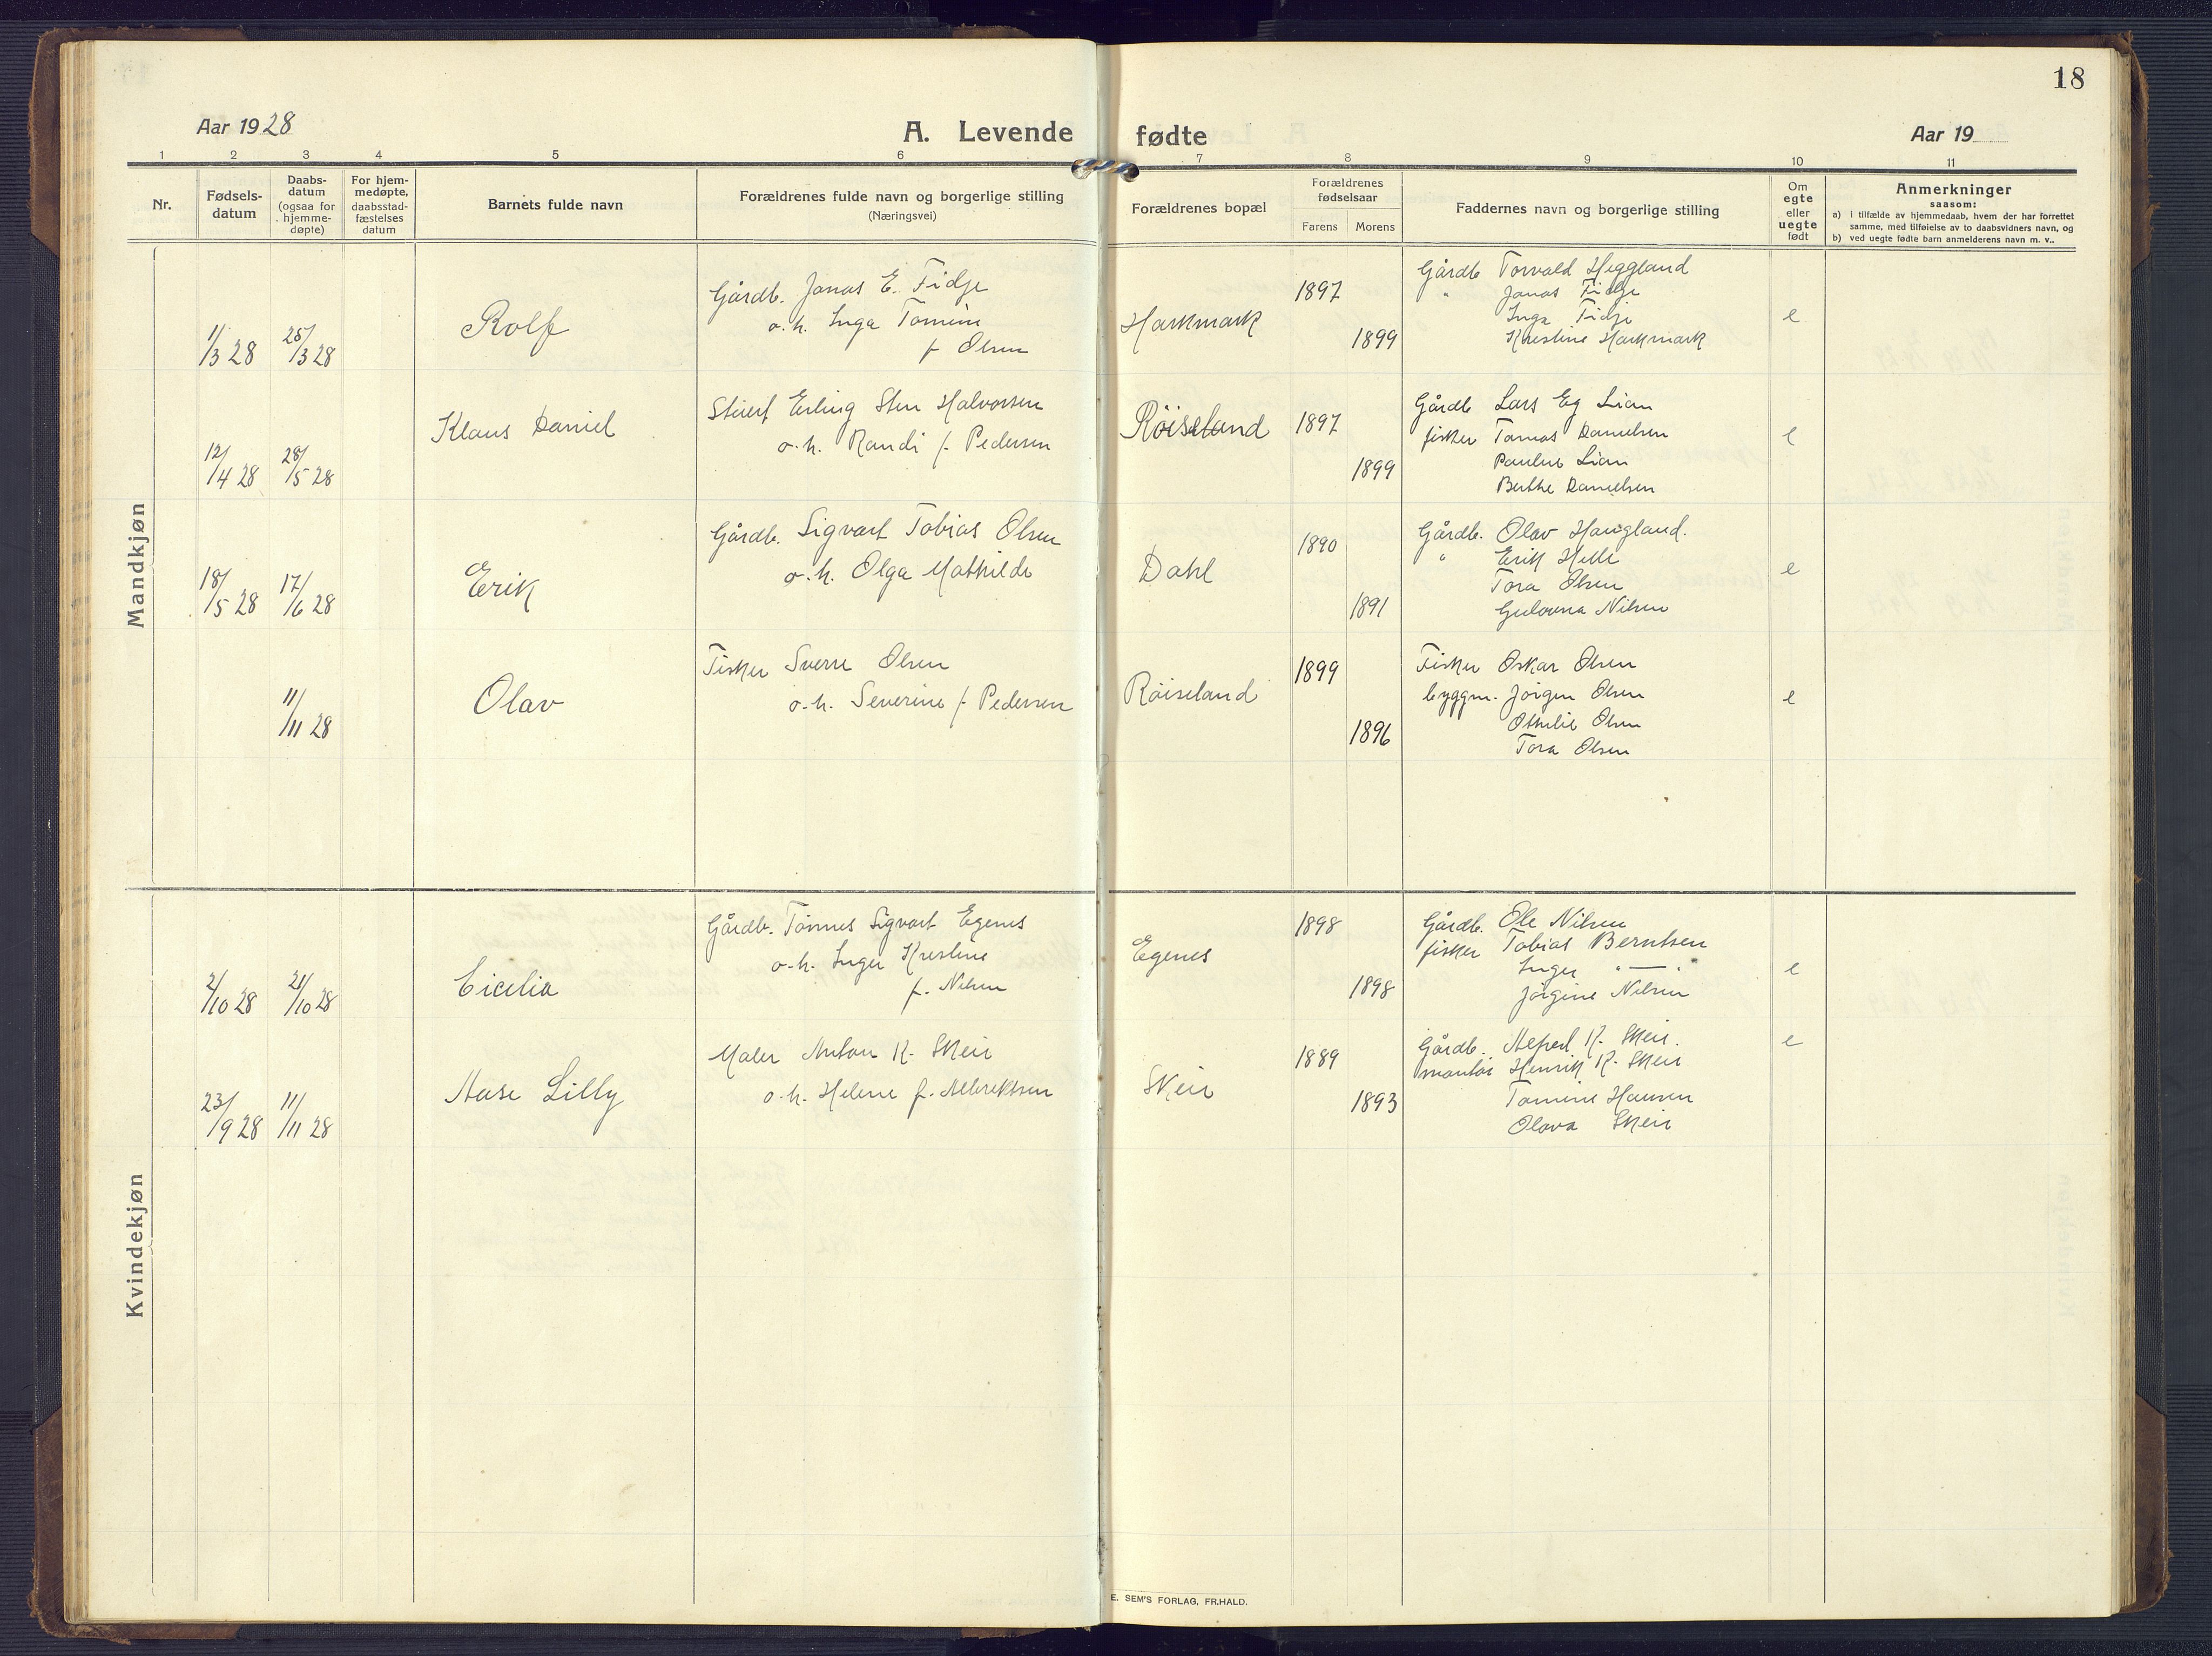 18
Aar 1928
A. Levende fødte
Aar 19
1 2 3 4 5 6 7 8 9 10 11
Nr.
Fødsels-
datum
Daabs-
datum
(ogsaa for
hjemme-
døpte)
For hjem-
medøpte,
daabsstad-
fæstelses
datum
Barnets fulde navn
Forældrenes fulde navn og borgerlige stilling
(Næringsvei)
Forældrenes bopæl
Forældrenes
fødselsaar
Farens Morens
Faddernes navn og borgerlige stilling
Om
egte
eller
uegte
født
Anmerkninger
saasom:
a) i tilfælde av hjemmedaab, hvem der har forrettet
samme, med tilføielse av to daabsvidners navn, og
b) ved uegte fødte barn anmelderens navn m. v..
Mandkjøn
1/3 28
25/3 28
Rolf
Gårdb. Jonas E. Fidje
o. h. Inga Tomine
f. Olsen
Harkmark
1897
1899
Gårdb Torvald Heggland
" Jonas Fidje
Inga Fidje
Kristine Harkmark
e
12/4 28
28/5 28
Klaus Daniel
Stuert Erling Sten Halvorsen
o. h. Randi f. Pedersen
Röiseland
1897
1899
Gårdb Lars Eg Lian
fisker Tomas Danielsen
Pauline Lian
Berthe Danielsen
e
18/5 28
17/6 28
Erik
Gårdb. Sigvart Tobias Olsen
o. h. Olga Mathilde
Dahl
1890
1891
Gårdb. Olav Haugland.
" Erik Helle
Tora Olsen
Gulovna Nilsen
e
11/11 28
Olav
Fisker Sverre Olsen
o. h. Severine f. Pedersen
Röiseland
1899
1896
Fisker Oskar Olsen
byggm. Jörgen Olsen
Othilie Olsen
Tora Olsen
e
Kvindekjøn
2/10 28
21/10 28
Cicilia
Gårdb. Tönnes Sigvart Egenes
o. h. Inger Kristine
f. Nilsen
Egenes
1898
1898
Gårdb. Ole Nilsen
fisker Tobias Berntsen
Inger " — "
Jörgine Nilsen
e
23/9 28
11/11 28
Aase Lilly
Maler Anton K. Skeie
o. h. Helene f. Albrektsen
Skeie
1889
1893
Gårdb. Alfred K. Skeie.
Henrik K. Skeie
Tomine Hansen
Olava Skeie
e
E. SEM'S FORLAG, FR.HALD.